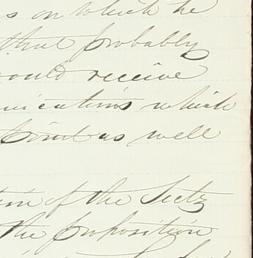 s on which he
that probably
would receive
unications which
as well
tion of the Secty
the proposition